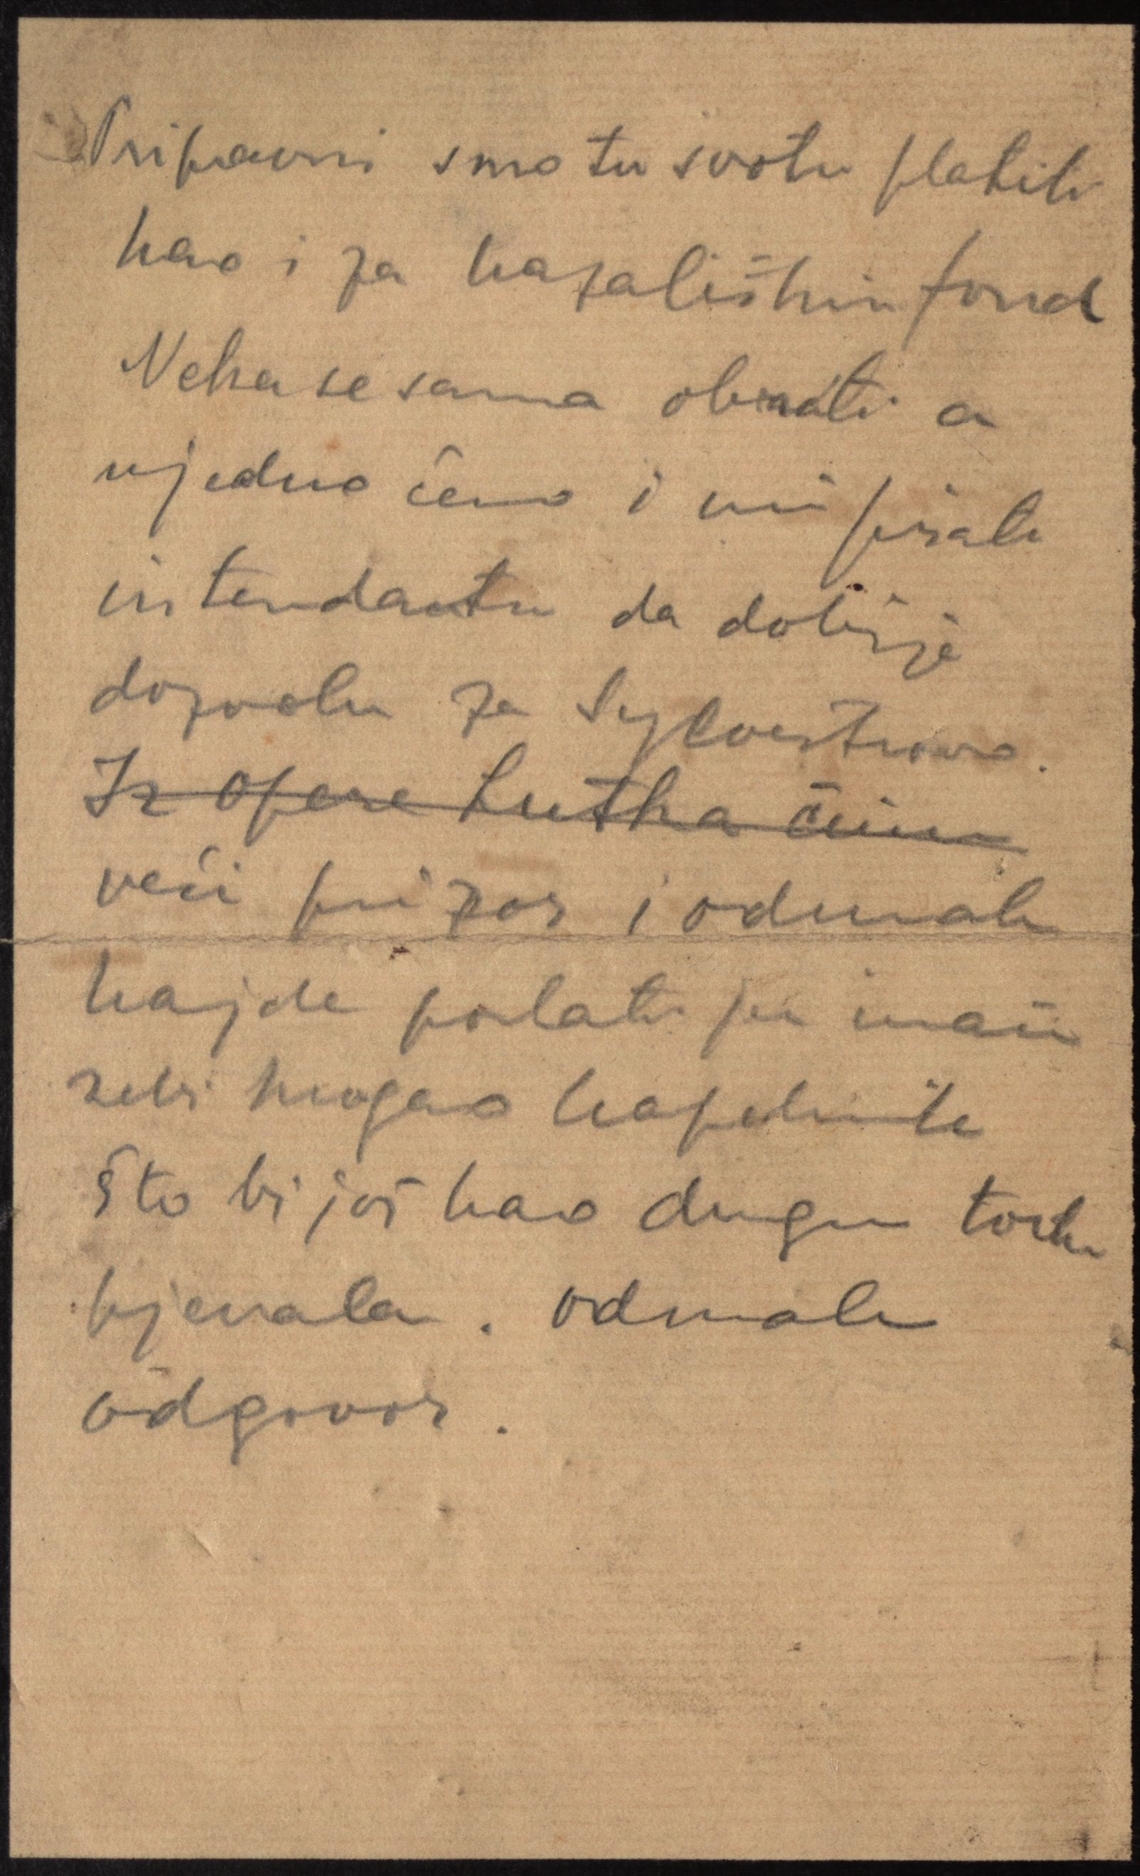 Pripravni smo tu svotu platiti
kao i za kazališni fond
Neka se sama obrati a
ujedno ćemo i mi pisati
intendantu da dobije
dozvolu za Sylvestrovo.
Iz opere Lutka
veći prizor i odmah
hajde poslati
kapelnik
što bi još kao drugu točku
pjevala. odmah
odgovor.